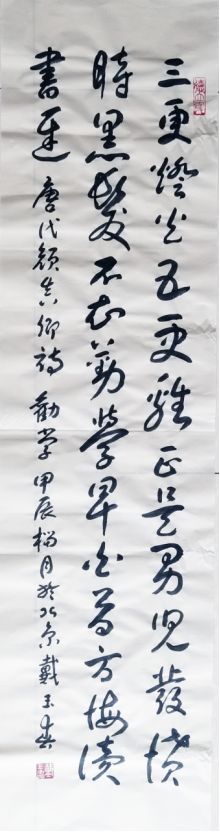 三更燈火五更雞正是男兒發憤
時黑髮不知勤學早白首方悔讀
書遲 唐代顏真卿詩 勸學 甲辰榴月於北京戴玉